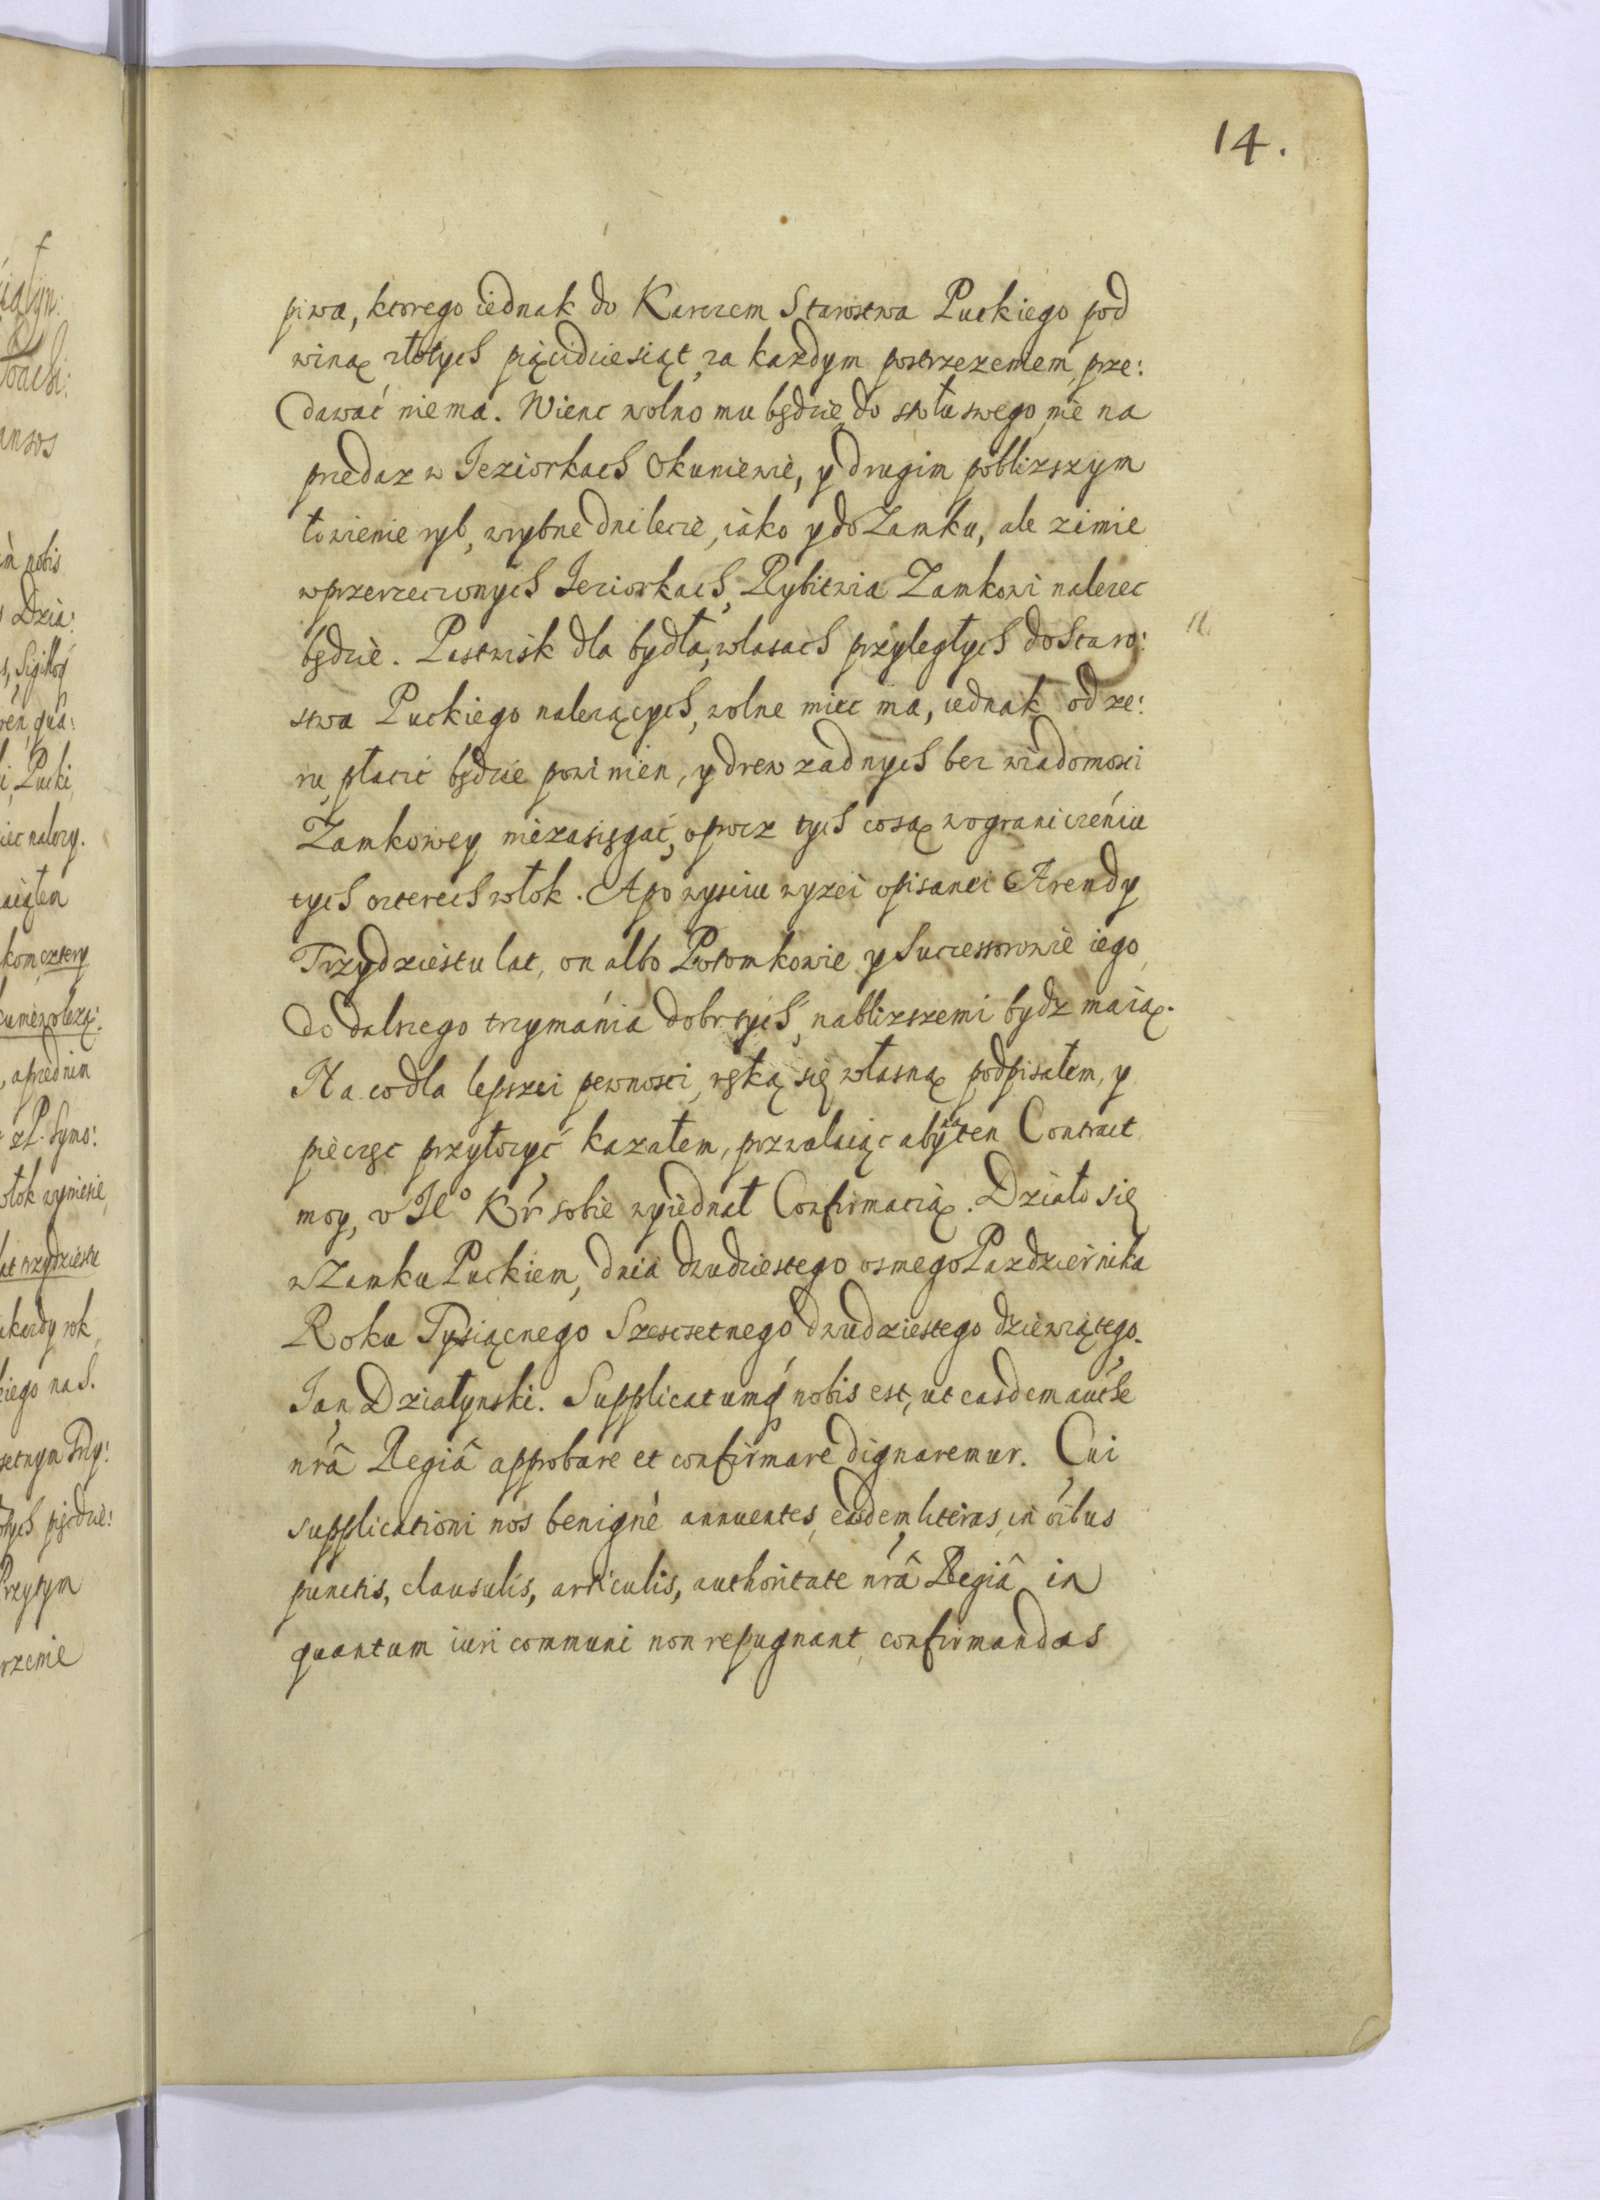 14.
piwa, ktorego iednak do Karczem Starostwa Puckiego pod
winą złotych pięcidziesiąt, za kazdym postrzezeniem, prze:
dawać nie ma. Wienc wolno mu będzie do stołu swego, nie na
przedaz w Jeziorkach Okuniewie, y drugim poblizszym
łowienie ryb, w rybne dni lecie, iáko y do Zamku, ale zimie
w przerzeczonych Jeziorkach, Rybitwia Zamkowi nalezec
będzie. Pastwisk dla bydła, w lasach przyległych do Staro:
stwa Puckiego nalezących, wolne miec ma, iednak od ze:
ru płacić będzie powinien, y drew zadnych bez wiadomosci
Zamkowey niezasięgać, oprocz tych co są w ograniczéniu
tych czterech włok. A po wysciu wyzei opisanei Arendy
Trzydziestu lat, on albo Potomkowie y Successorowie iego
do dalszego trzymánia dobr tych, nablizszemi bydz maią.
Na co dla lepszei pewnosci, ręką się własną podpisałem, y
pieczęc przyłozyć kazałem, pozwalaiąc aby na ten Contract
moy, v J K Mr sobie wyiednał Confirmacią. Działo się
w Zamku Puckiem, dnia dwudziestego osmego Pazdziernika
Roku Tysiącnego Szescsetnego dwudziestego dziewiątego.
Jan Działynski. Supplicatumq́ nobis est, ut easdem auth
nrâ Regiâ approbare et confirmare dignaremur. Cui
supplicationi nos benigné annuentes, easdem literas, in oibus
punctis, clausulis, articulis, authoritate nrâ Regiâ in
quantum iuri communi non repugnant, confirmandas